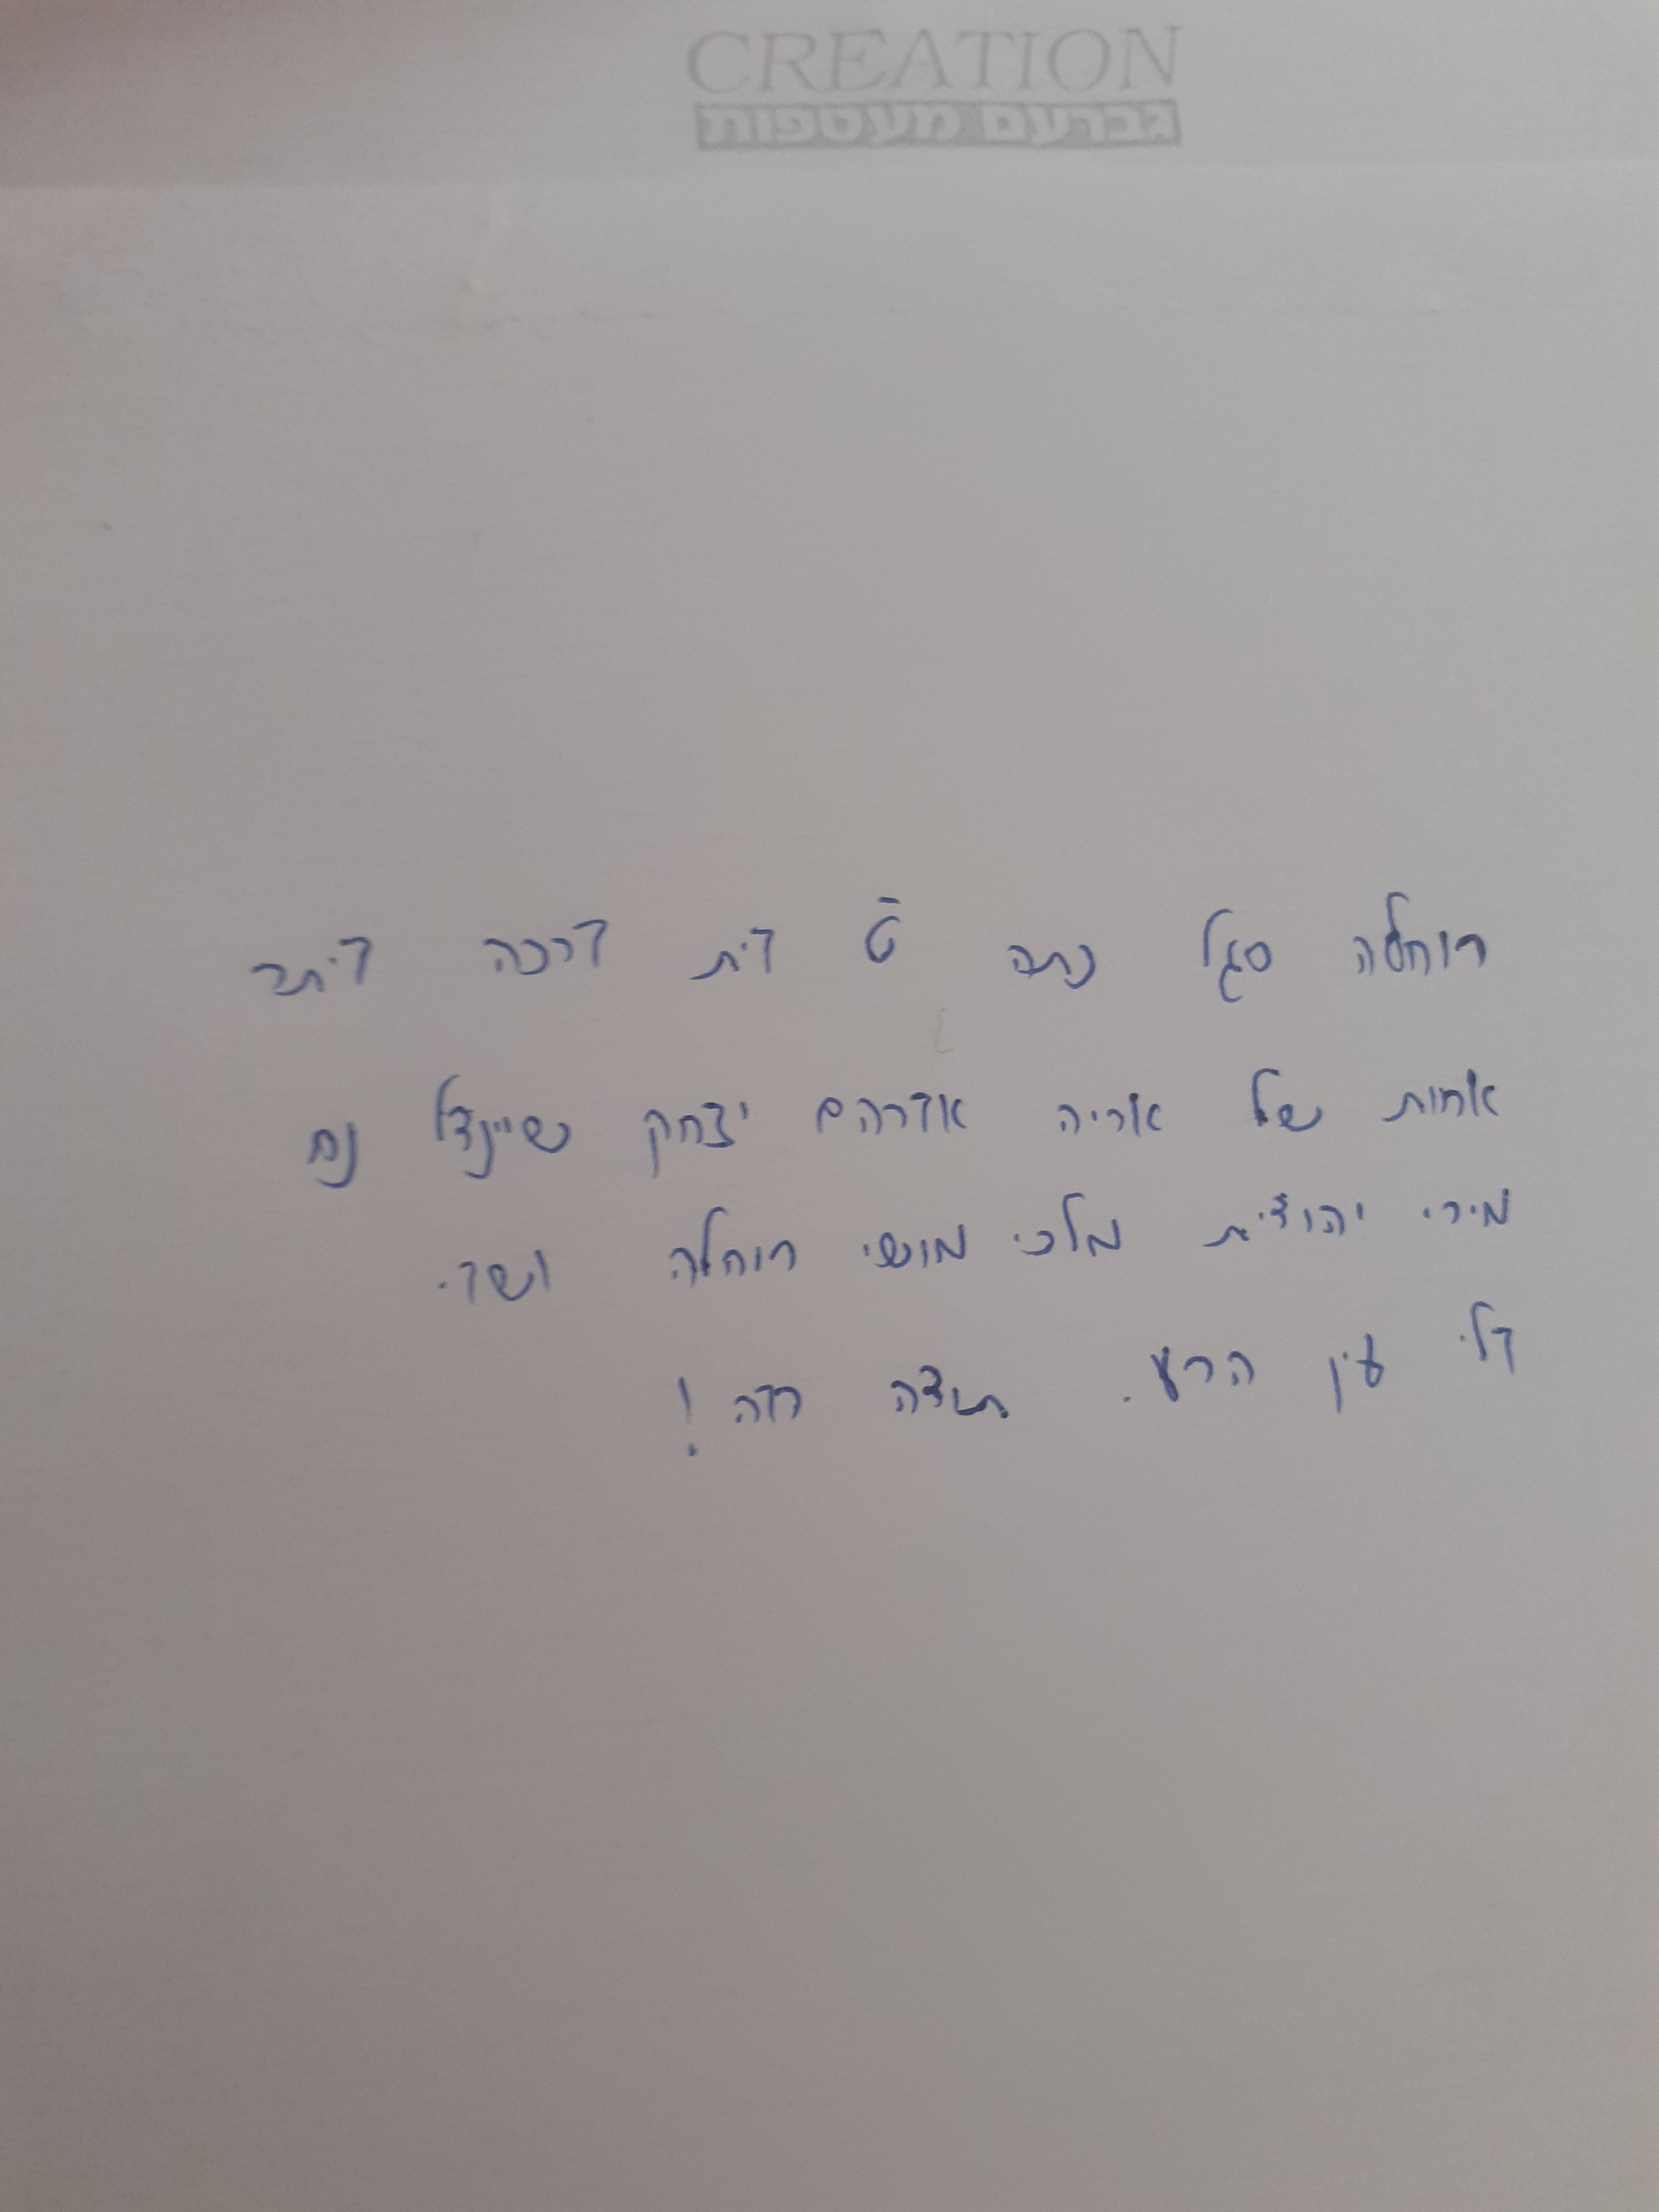 CREATION
גברעם מעטפות
רוחלה סגל כתה ט בית ברכה ביתר
אחות של אריה אברהם יצחק שיינדל נח
מירי יהודית מלכי מושי רוחלה ושר.
בלי עין הרע. תודה רבה!